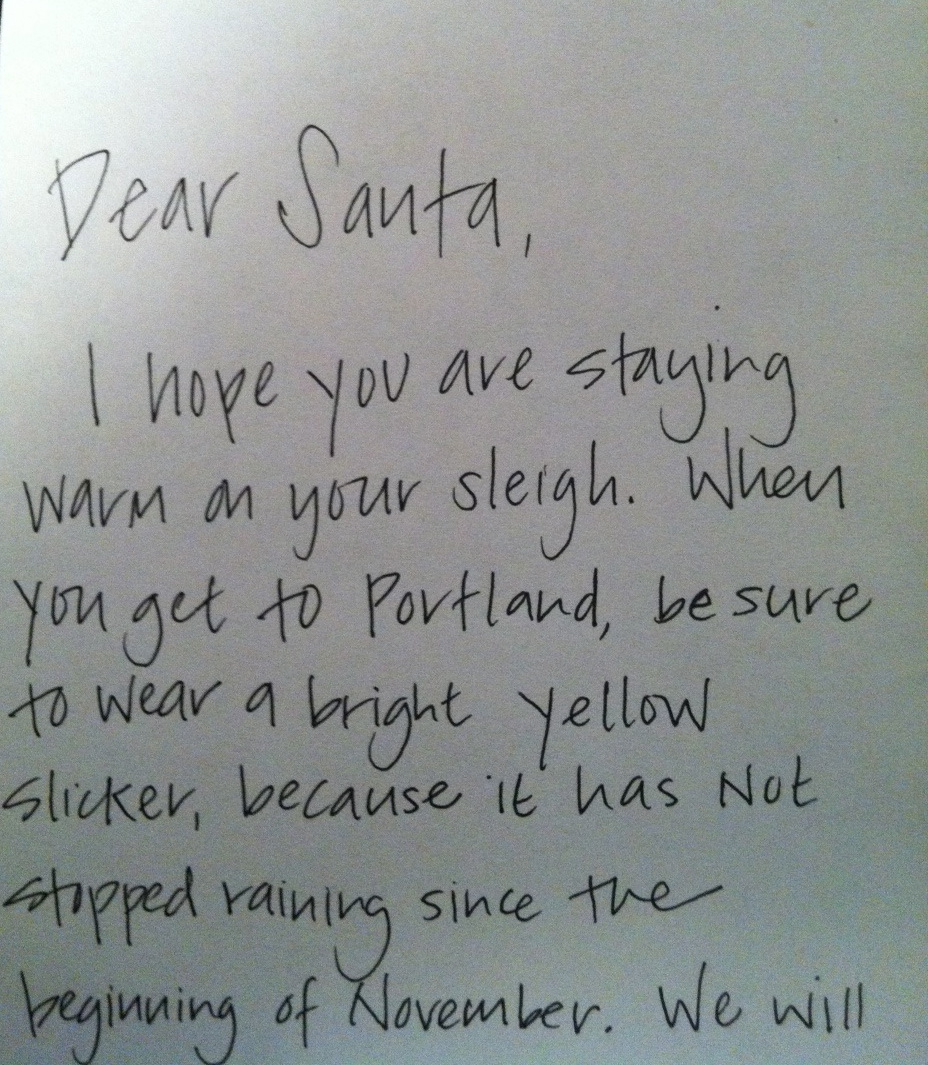 Dear Santa,
I hope you are staying
warm on your sleigh. When
you get to Portland, be sure
to wear a bright yellow
slicker, because it has Not
stopped raining since the
beginning of November. We will